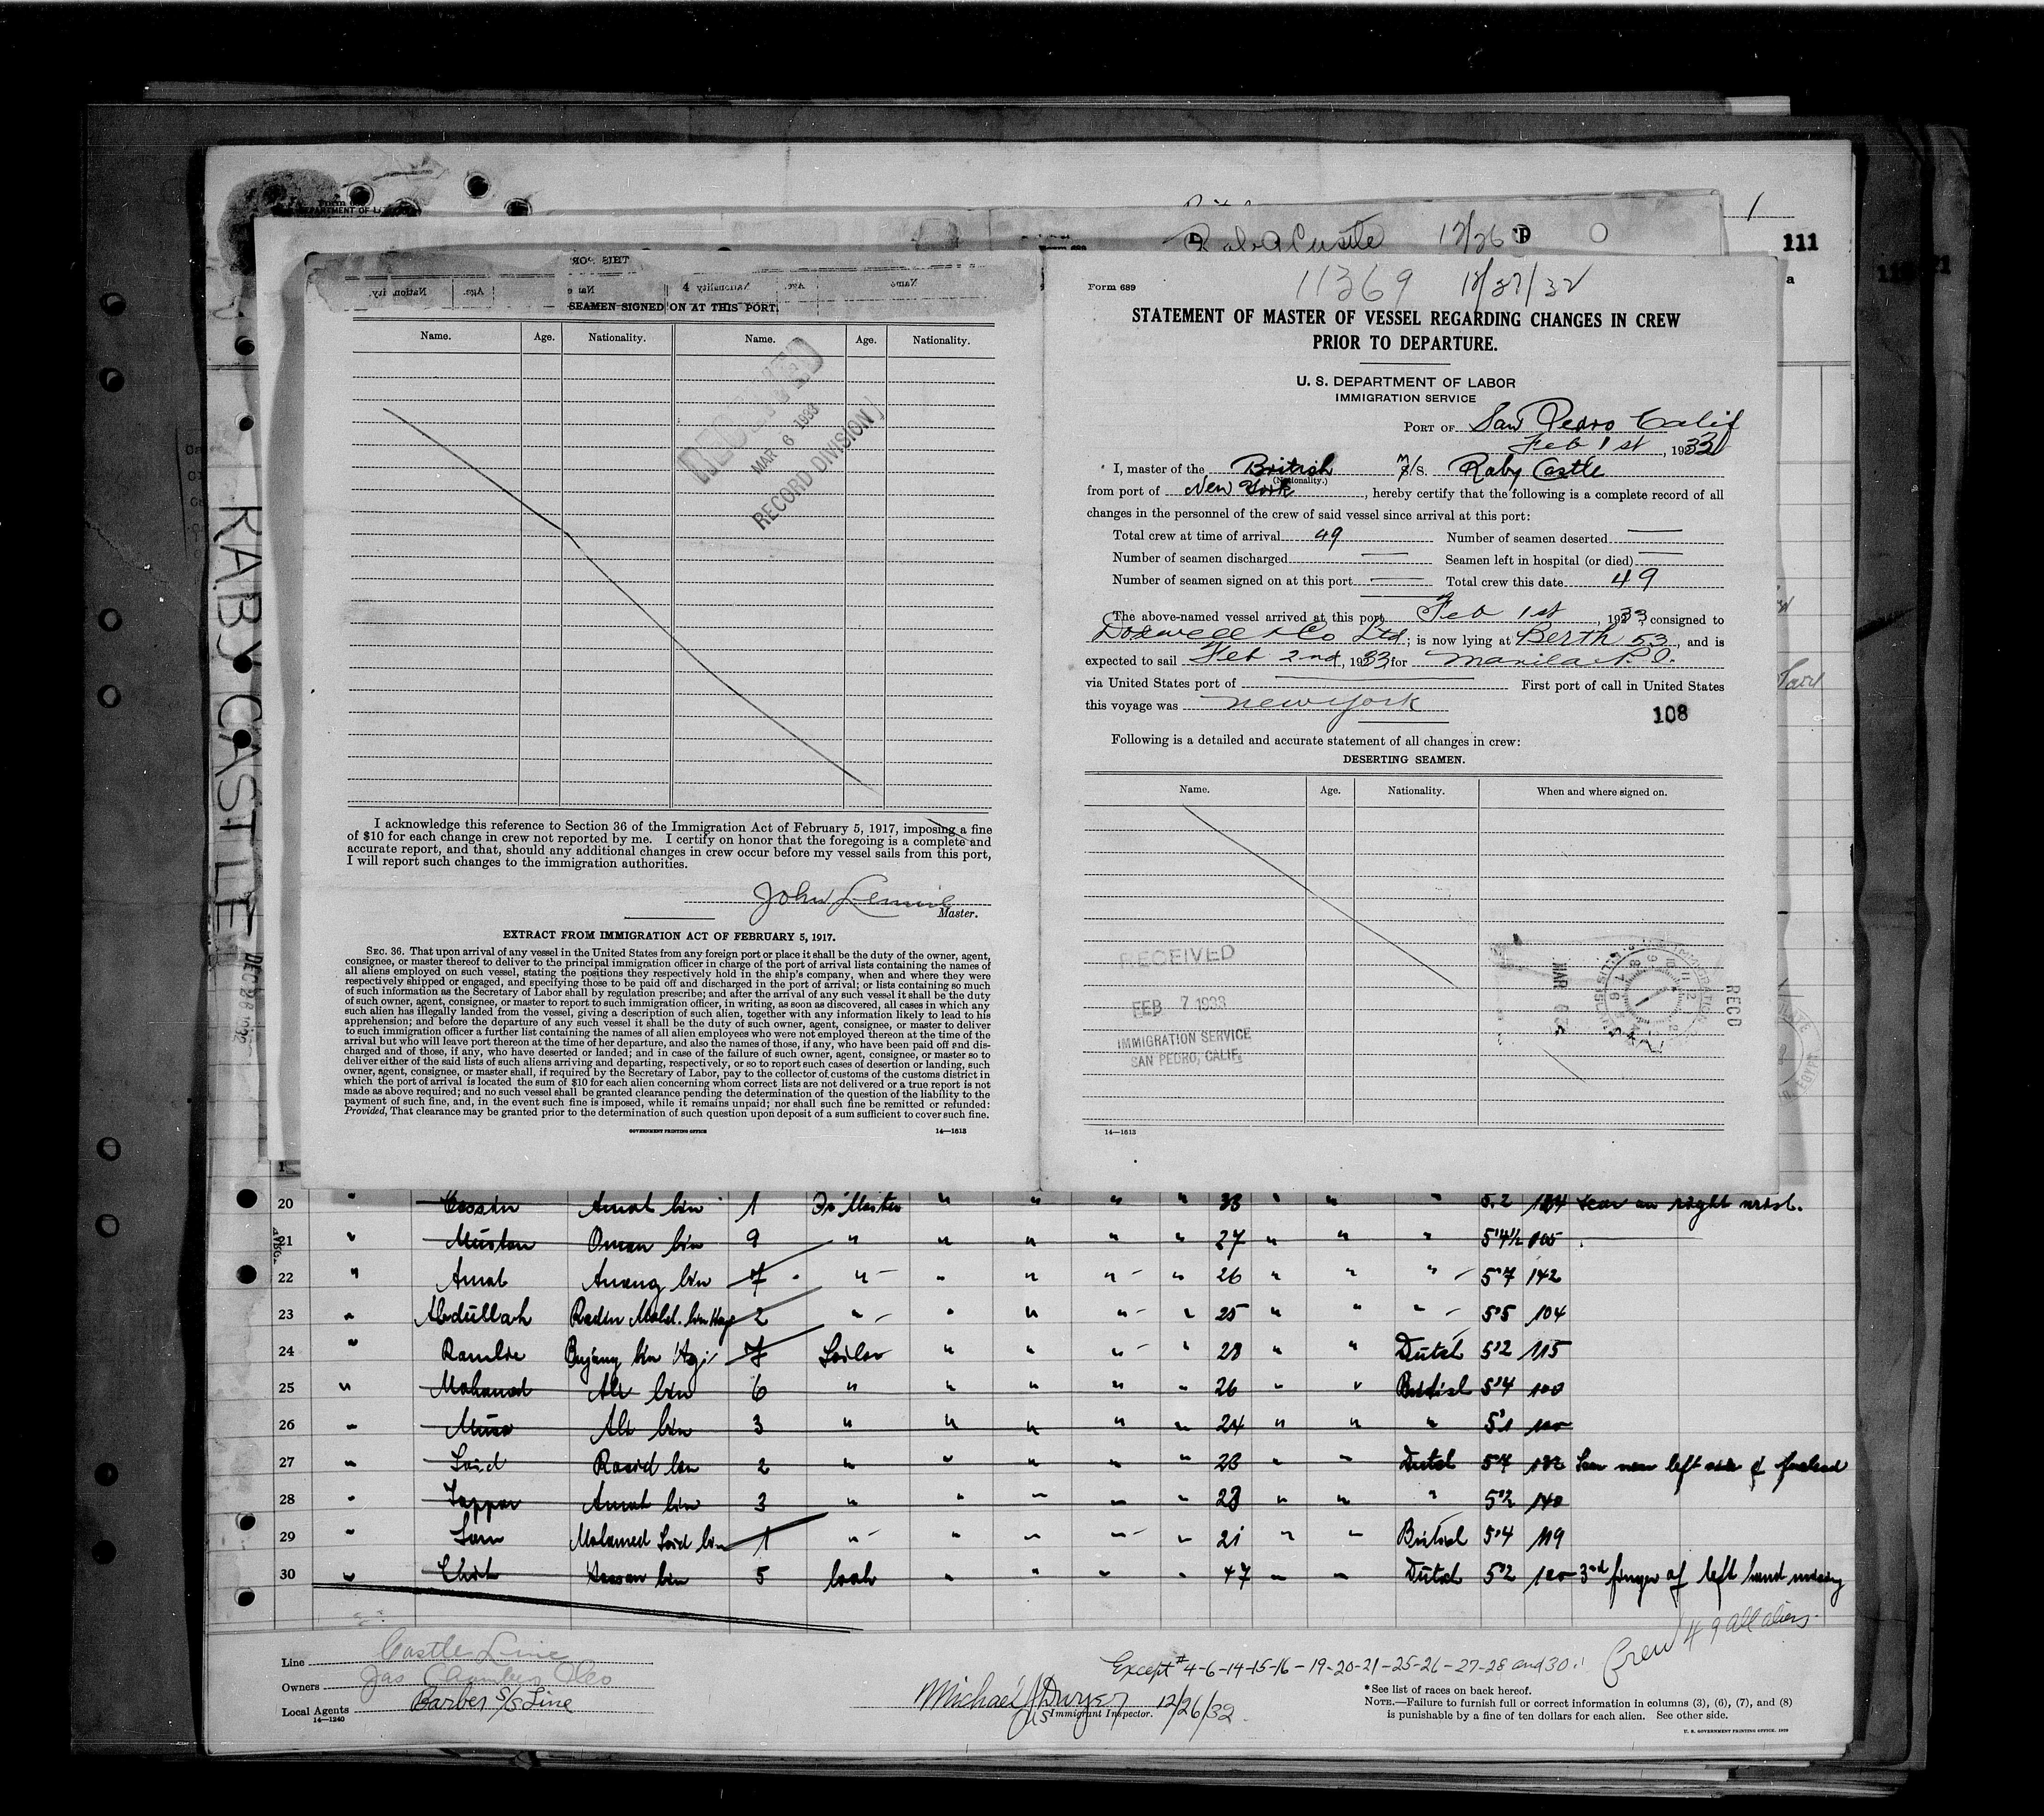 Form 689
DEPARTMENT OF L
Raby Castle 12/26
1
111
SEAMEN SIGNED ON AT THIS PORT.
Name. Age. Nationality. Name. Age. Nationality.
RECEIVED
MAR 6 1933
RECORD DIVISION
I acknowledge this reference to Section 36 of the Immigration Act of February 5, 1917, imposing a fine
of $10 for each change in crew not reported by me. I certify on honor that the foregoing is a complete and
accurate report, and that, should any additional changes in crew occur before my vessel sails from this port,
I will report such changes to the immigration authorities.
John
Master.
EXTRACT FROM IMMIGRATION ACT OF FEBRUARY 5, 1917.
SEC. 36. That upon arrival of any vessel in the United States from any foreign port or place it shall be the duty of the owner, agent,
consignee, or master thereof to deliver to the principal immigration officer in charge of the port of arrival lists containing the names of
all aliens employed on such vessel, stating the positions they respectively hold in the ship's company, when and where they were
respectively shipped or engaged, and specifying those to be paid off and discharged in the port of arrival; or lists containing so much
of such information as the Secretary of Labor shall by regulation prescribe; and after the arrival of any such vessel it shall be the duty
of such owner, agent, consignee, or master to report to such immigration officer, in writing, as soon as discovered, all cases in which any
such alien has illegally landed from the vessel, giving a description of such alien, together with any information likely to lead to his
apprehension; and before the departure of any such vessel it shall be the duty of such owner, agent, consignee, or master to deliver
to such immigration officer a further list containing the names of all alien employees who were not employed thereon at the time of the
arrival but who will leave port thereon at the time of her departure, and also the names of those, if any, who have been paid off and dis-
charged and of those, if any, who have deserted or landed; and in case of the failure of such owner, agent, consignee, or master so to
deliver either of the said lists of such aliens arriving and departing, respectively, or so to report such cases of desertion or landing, such
owner, agent, consignee, or master shall, if required by the Secretary of Labor, pay to the collector of customs of the customs district in
which the port of arrival is located the sum of $10 for each alien concerning whom correct lists are not delivered or a true report is not
made as above required; and no such vessel shall be granted clearance pending the determination of the question of the liability to the
payment of such fine, and, in the event such fine is imposed, while it remains unpaid; nor shall such fine be remitted or refunded:
Provided, That clearance may be granted prior to the determination of such question upon deposit of a sum sufficient to cover such fine.
GOVERNMENT PRINTING OFFICE 14—1613
Form 689
11369 12/27/32
STATEMENT OF MASTER OF VESSEL REGARDING CHANGES IN CREW
PRIOR TO DEPARTURE.
U. S. DEPARTMENT OF LABOR
IMMIGRATION SERVICE
PORT OF San Pedro Calif
Feb 1st, 1933
I, master of the British M/S. Raby Castle
(Nationality.)
from port of New York, hereby certify that the following is a complete record of all
changes in the personnel of the crew of said vessel since arrival at this port:
Total crew at time of arrival 49 Number of seamen deserted
Number of seamen discharged Seamen left in hospital (or died)
Number of seamen signed on at this port Total crew this date 49
The above-named vessel arrived at this port Feb 1st, 1933, consigned to
Dodwell & Co Ltd; is now lying at Berth 53, and is
expected to sail Feb 2nd, 1933 for Manila P.I.
via United States port of First port of call in United States
this voyage was New York
108
Following is a detailed and accurate statement of all changes in crew:
DESERTING SEAMEN.
Name. Age. Nationality. When and where signed on.
RECEIVED
FEB 7 1933
IMMIGRATION SERVICE
SAN PEDRO, CALIF.
MAR
REC'D
14—1613
RABY CASTLE
DEC 28 1932
20 " Cassim Amat bin 1 " " " " 38 " " " 5.2 134 Scar on right wrist.
21 " Mustan Oman bin 9 " " " " " 27 " " " 5'4½ 105
22 " Amat Awang bin 7 " " " " " 26 " " " 5'7 142
23 " Abdullah Radin Mohd. bin Haji 2 " " " " " 25 " " " 5'5 104
24 " Ramlie Bujang bin Haji 7 Sailor " " " " 28 " " Dutch 5'2 115
25 " Mohamed Ali bin 6 " " " " " 26 " " British 5'4 100
26 " Musa Ali bin 3 " " " " " 24 " " " 5'1 100
27 " Said Rasid bin 2 " " " " " 23 " " Dutch 5'4 132 Scar near left side of forehead
28 " Amat bin 3 " " " " " 23 " " " 5'2 140
29 " Sam Mohamed Said bin 1 " " " " " 21 " " British 5'4 119
30 " Hassan bin 5 Cook " " " " 47 " " Dutch 5'2 100 3rd finger of left hand missing
Crew 49 all aliens.
Line Castle Line
Owners Jas Chambers & Co
Local Agents Barber S/S Line
14—1240
Except # 4-6-14-15-16-19-20-21-25-26-27-28 and 30.
Michael J Dwyer 12/26/32
Immigrant Inspector.
*See list of races on back hereof.
NOTE.—Failure to furnish full or correct information in columns (3), (6), (7), and (8)
is punishable by a fine of ten dollars for each alien. See other side.
U. S. GOVERNMENT PRINTING OFFICE. 1929